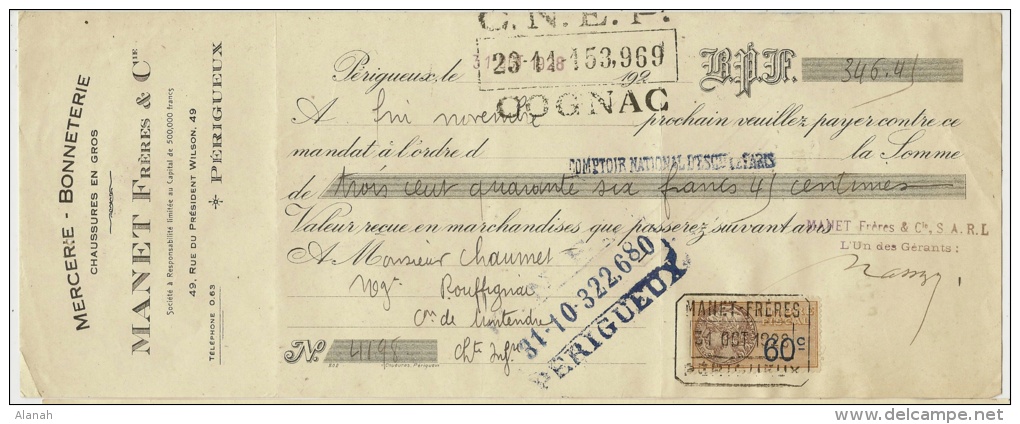 MERCERIE - BONNETERIE
CHAUSSURES EN GROS
MANET FRÈRES & CIE
Société à Responsabilité limitée au Capital de 500,000 francs
49, RUE DU PRÉSIDENT WILSON, 49
PÉRIGUEUX
TÉLÉPHONE 0.63
C.N.E.P.
23-11-153,969
COGNAC
Périgueux, le 31 1928 192
B.P.F. 346.4
A fin novembre prochain veuillez payer contre ce
mandat à l'ordre d COMPTOIR NATIONAL D'ESCTE PARIS la Somme
de trois cent quarante six francs 4 centimes
Valeur reçue en marchandises que passerez suivant avis
MANET Frères & Cie, S.A.R.L
L'Un des Gérants :
A Monsieur Chaumet
Ngt Rouffignac
Cne de Montendre
Chte Infre
No 41198
852
31-10-322,680
PÉRIGUEUX
MANET-FRÈRES
31 OCT 1928
60c
PÉRIGUEUX
Alanah
www.delcampe.net